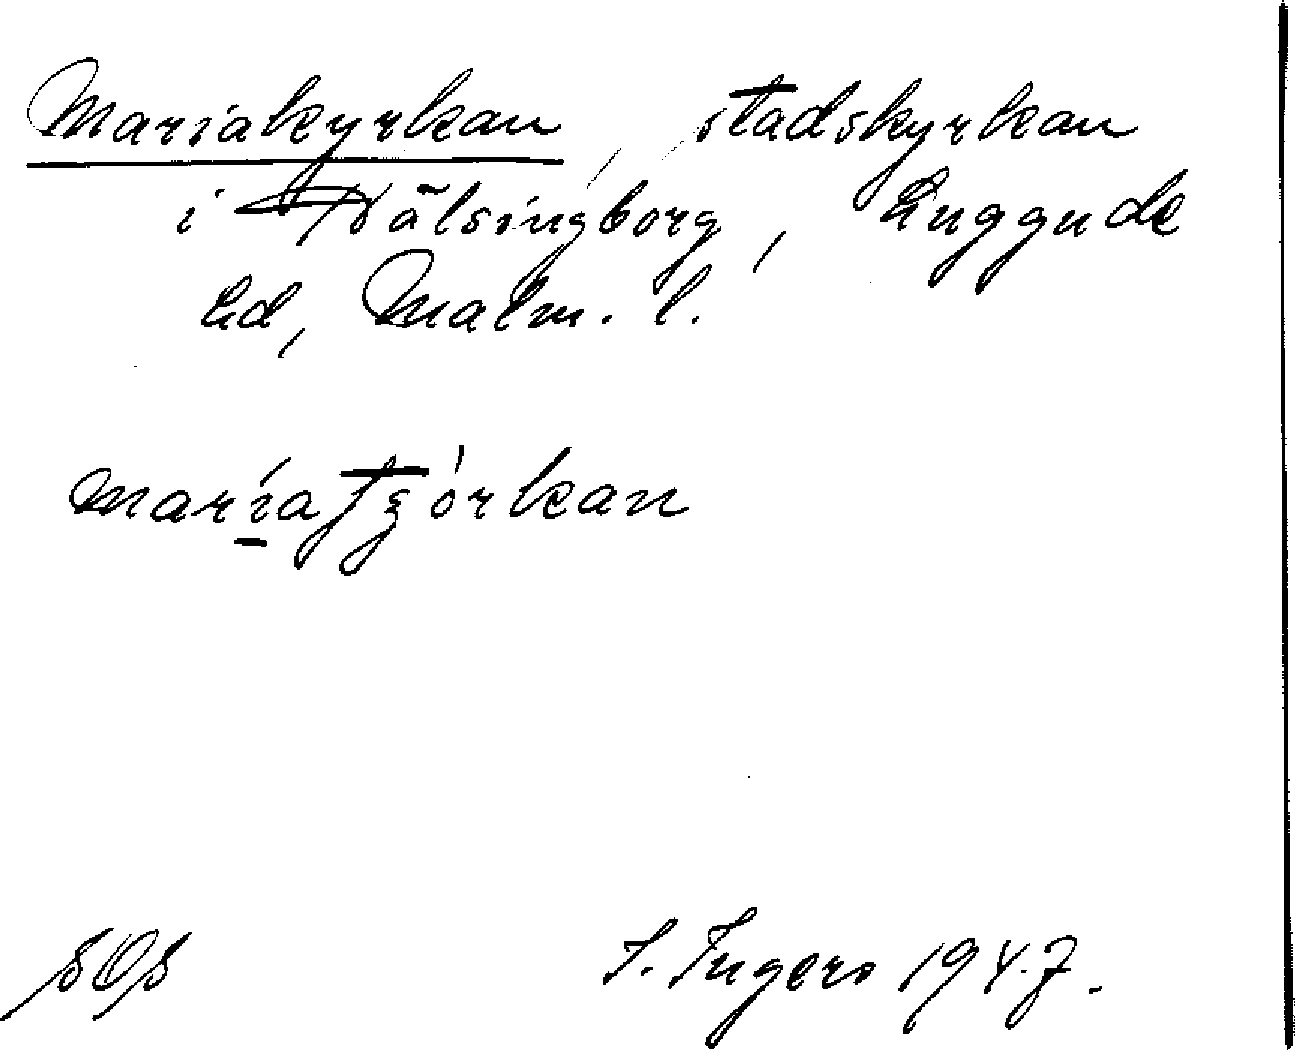 Mariakyrkan, stadskyrkan
i Hälsingborg, Luggude
hd, Malm. l.
SOS
I. Ingers 1947.